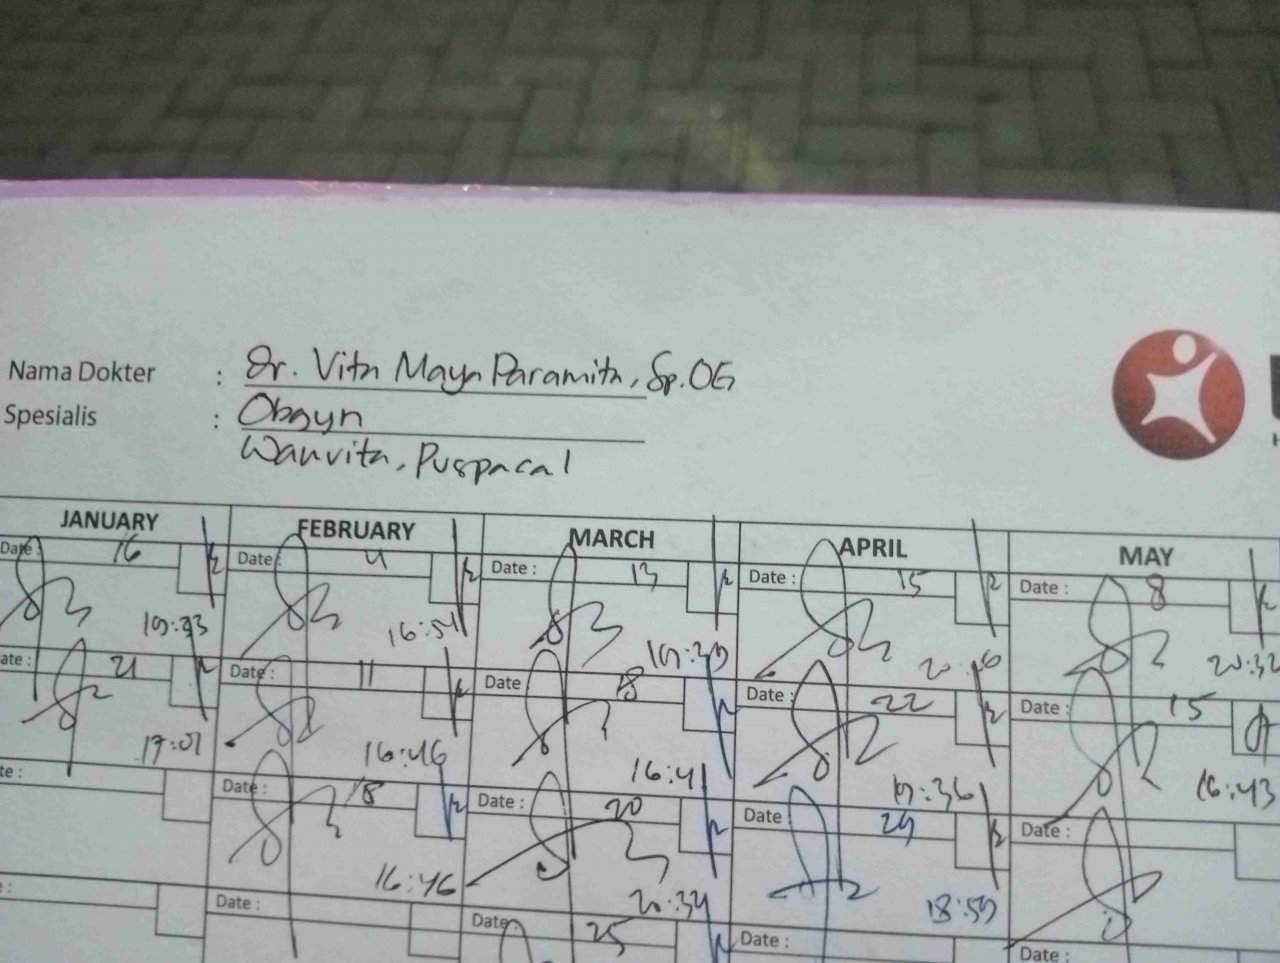 Nama Dokter : Dr. Vita Maya Paramita, Sp.OG
Spesialis : Obgyn
Wanvita, Puspacal
JANUARY FEBRUARY MARCH APRIL MAY
Date : 16 Date : 4 Date : 13 Date : 15 Date : 8
16:51 20:32
ate : 21 Date : 11 Date 18 Date : 22 Date : 15
17:01 16:46 16:41 19:36 16:43
te : Date : 18 Date : 20 Date 29 Date :
16:46 20:34 18:59
: Date : Date : 25 Date : Date :